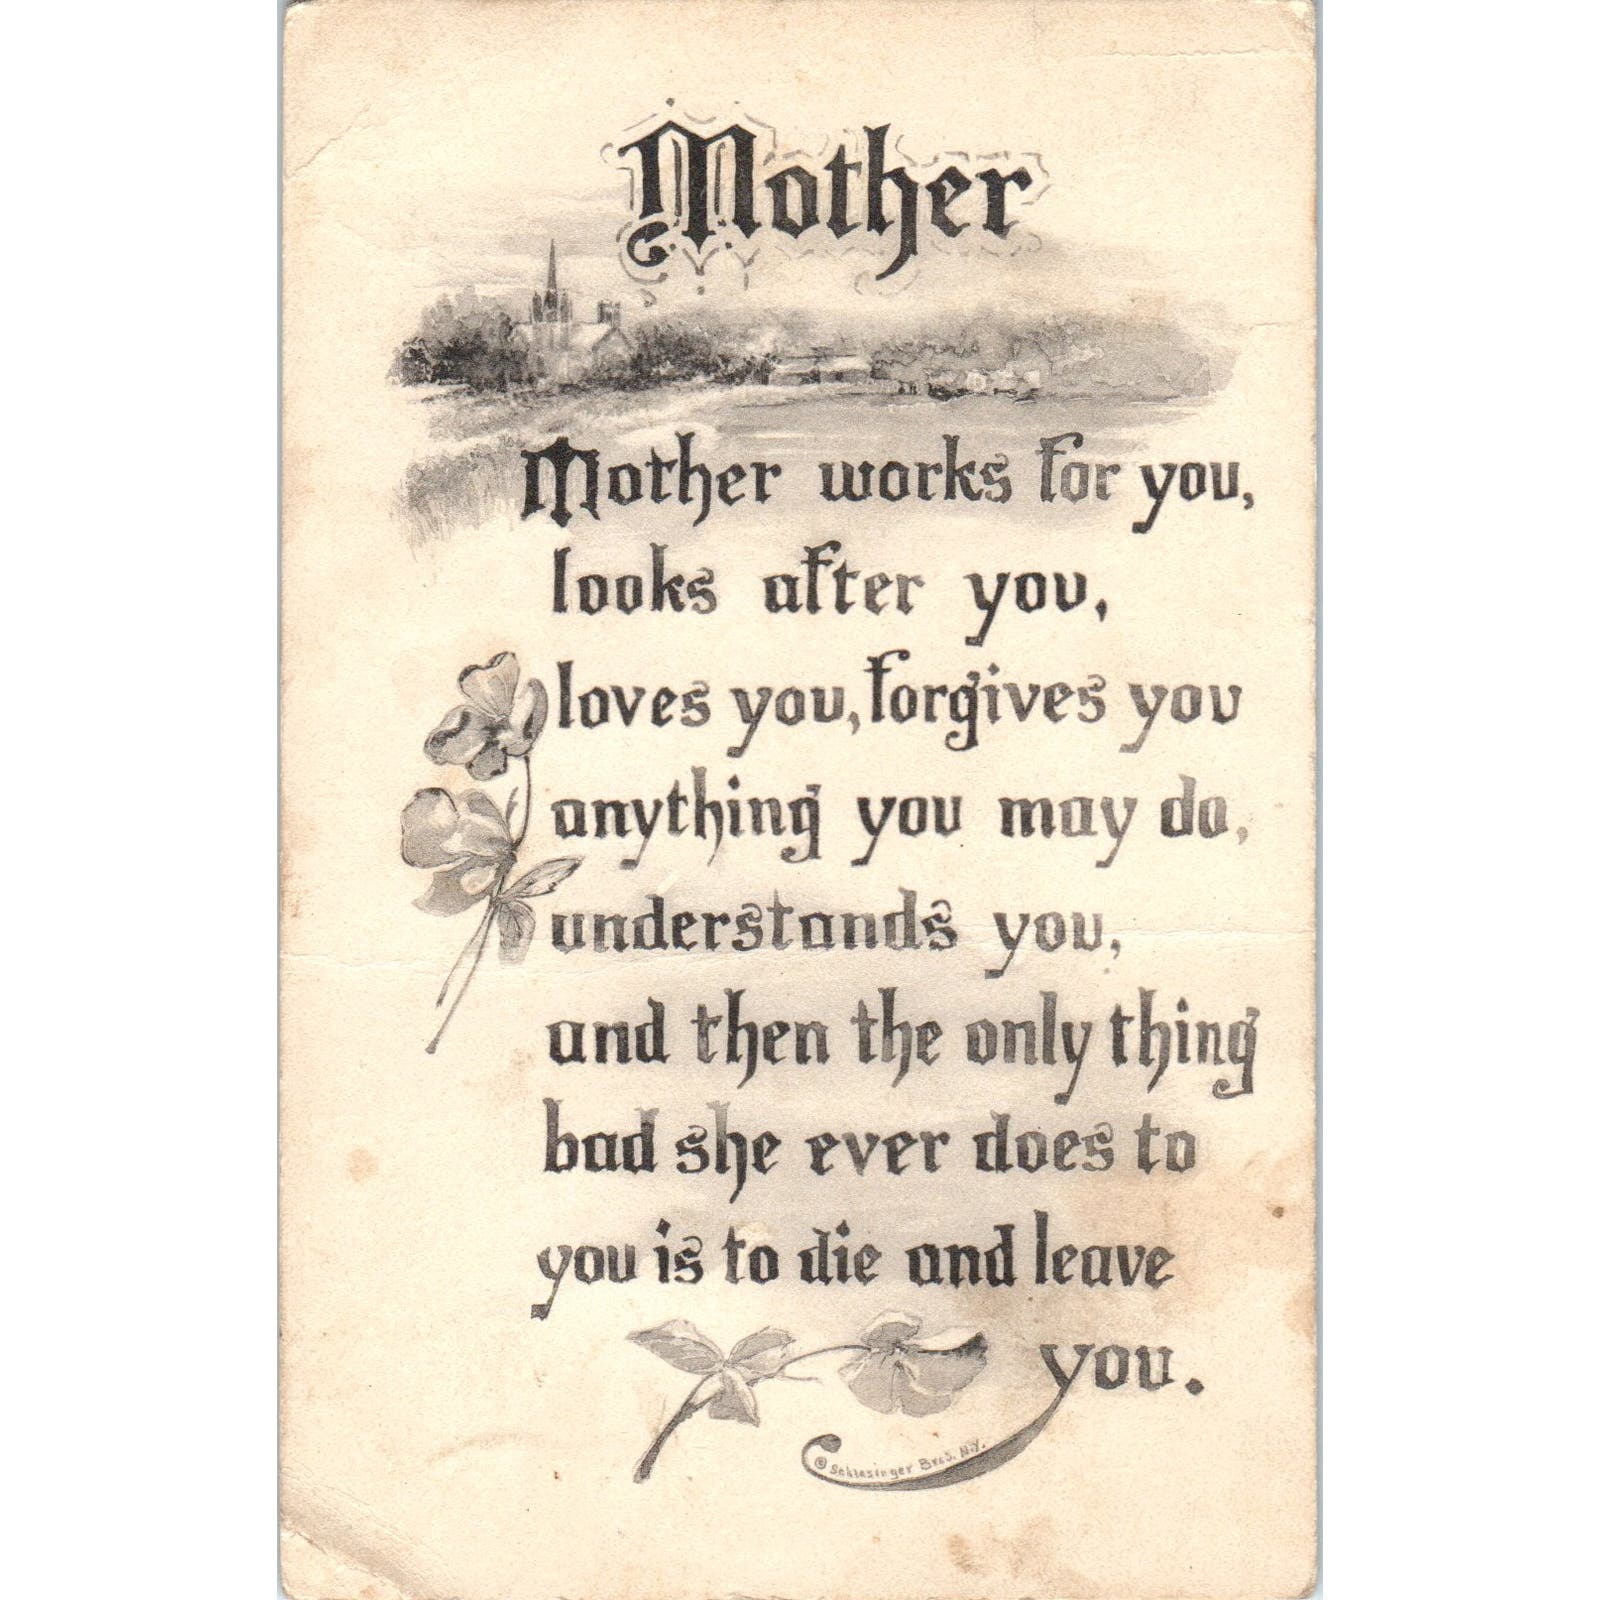 Mother
Mother works for you,
looks after you,
loves you, forgives you
anything you may do,
understands you,
and then the only thing
bad she ever does to
you is to die and leave
you.
© Schlesinger Bros. N.Y.